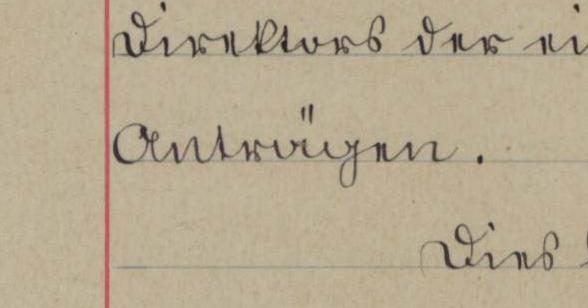 Direktors der ei
Anträgen.
Dies